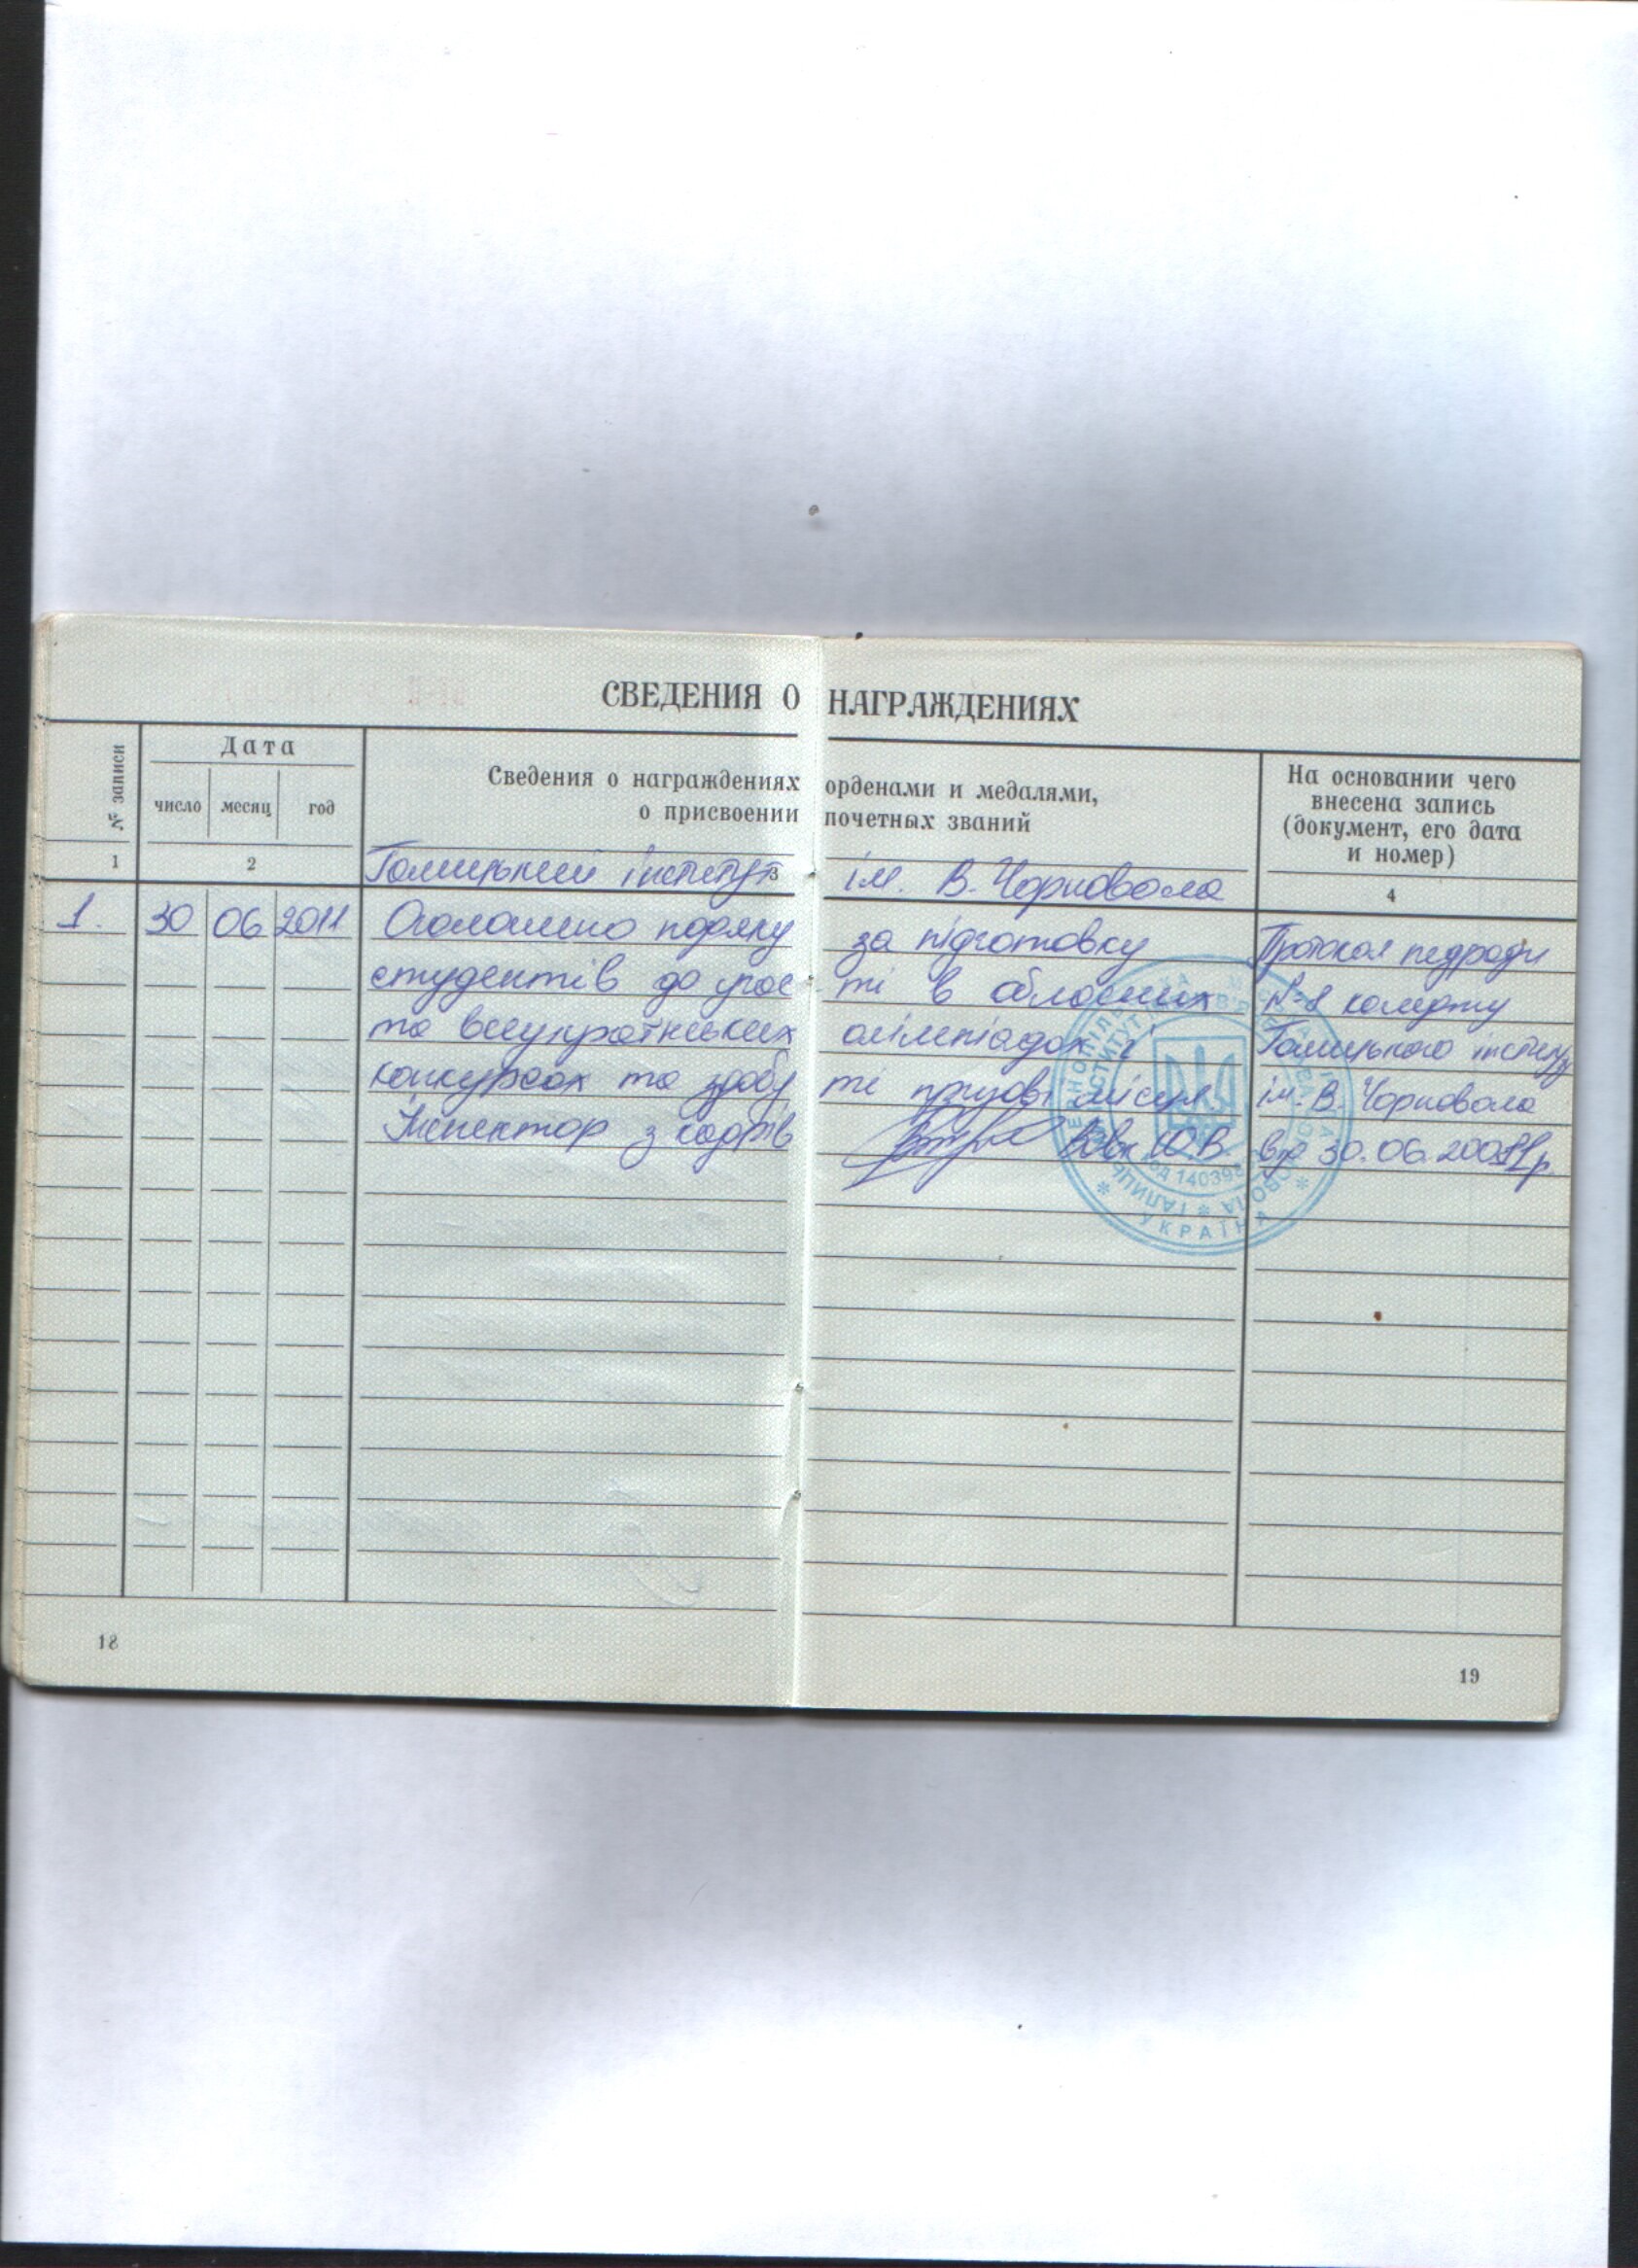 СВЕДЕНИЯ О НАГРАЖДЕНИЯХ
№ записи
Дата
число месяц год
Сведения о награждениях орденами и медалями,
о присвоении почетных званий
На основании чего
внесена запись
(документ, его дата
и номер)
1 2 3 4
Галицький інститут ім. В. Чорновола
1. 30 06 2011 Оголошено подяку за підготовку
студентів до учас ті в обласних
та всеукраїнських олімпіадах і
конкурсах та здобу ті призові місця
Інспектор з кадрів Вовк
Протокол педради
№8 коледжу
Галицького інституту
ім. В. Чорновола
від 30.06.
УКРАЇНА
18
19